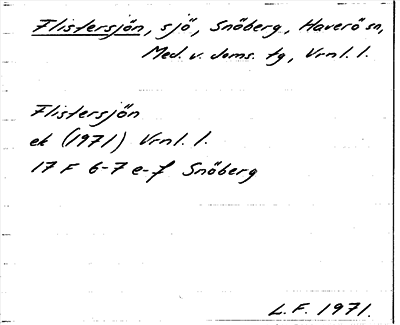 Flistersjön, sjö, Snöberg, Haverö sn,
Med. v. doms. tg, Vrnl. l.
Flistersjön
ek (1971) Vrnl. l.
17 F 6-7 e-f Snöberg
L.F. 1971.